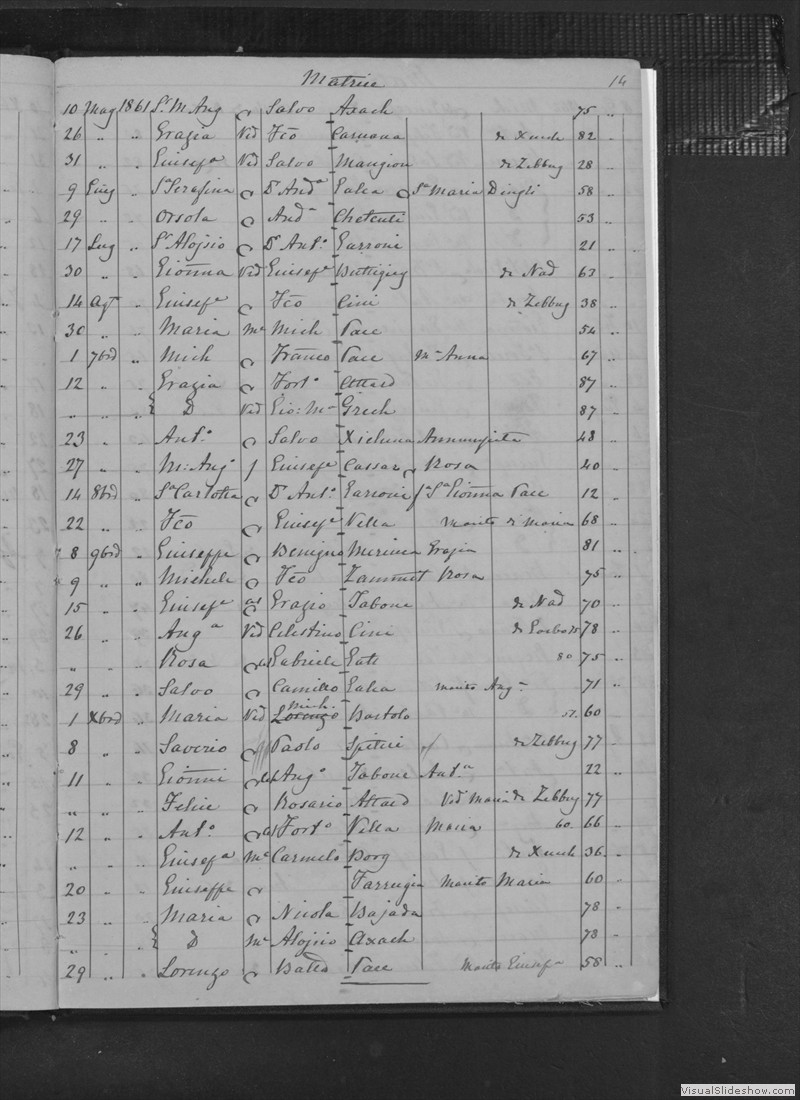 Matrice 14
10 Mag 1861 Sr. M Ang Salvo Axach 75 "
26 " " Grazia Vid Fco Caruana de Xueh 82 "
31 " " Giusepa Vid Salvo Mangion de Zebbug 28 "
9 Giug " Sr Serafina Dr Anda Galea Sa Maria Dingli 58 "
29 " " Orsola And Chetcuti 53 "
17 Lug " Sr Alojsio Dr Anto. Garroni 21 "
30 " " Gionna Vid Giusepe Buttigieg de Nad 63 "
14 Agt " Giusepe Fco Cini de Zebbug 38 "
30 " " Maria Me Mich Pace 54 "
1 7bre " Mich Franco Pace Me Anna 67 "
12 " " Grazia Forto Attard 87 "
" " " D Vid Gio: Me Grech 87 "
23 " " Anto. Salvo Xicluna Annunziata 48 "
27 " " M: Ango f Giusepe Cassar Rosa 40 "
14 8bre " Sa Carlotta Dr Anto. Garroni fa Sa Gionna Pace 12 "
22 " " Fco Giusepe Vella marito di Maria 68 "
8 9bre " Giuseppe Benigno Grazia 81 "
9 " " Michele Fco Zammit Rosa 75 "
15 " " Giusepe Grazio Tabone de Nad 70 "
26 " " Anga Vid Celestino Cini de 78 "
" " " Rosa Gabriele Gatt 80 75 "
29 " " Salvo Camillo Galea marito Ang 71 "
1 Xbre " Maria Vid Lorenzo Mich. Bartolo 60 "
8 " " Saverio Paolo Spiteri de Zebbug 77 "
11 " " Gionni Ango Tabone Anta 22 "
" " " Felice Rosario Attard Vid Maria de Zebbug 77
12 " " Anto. Forto Vella Maria 60 66 "
" " " Giusepa Me Carmelo Borg de Xueh 36 "
20 " " Giuseppe Farrugia marito Maria 60 "
23 " " Maria Nicola Bajada 78 "
" " " D Me Alojsio Axach 78 "
29 " " Lorenzo Pace Marito Giusepa 58 "
VisualSlideshow.com